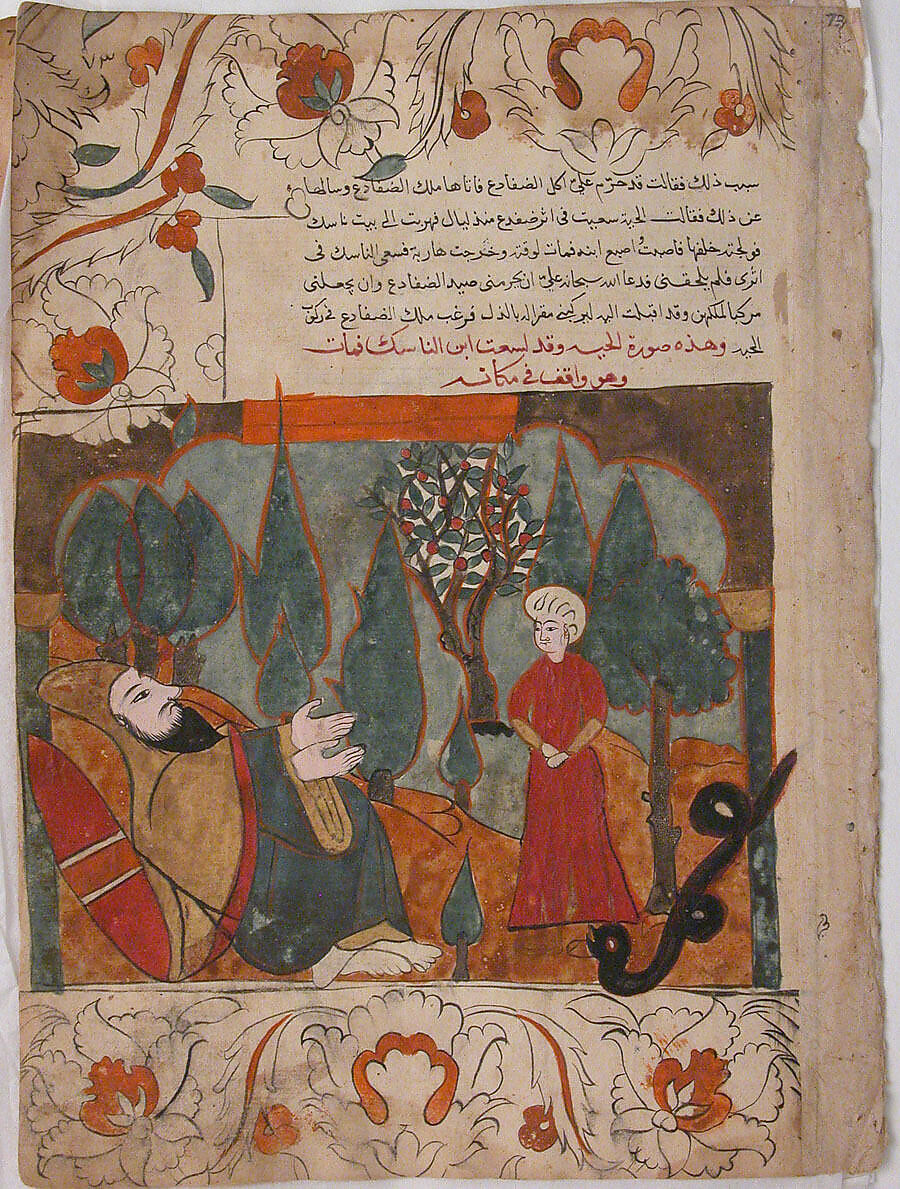 73
٧٣
سبب ذلك فقالت قد حرم عليّ اكل الضفادع فاتاها ملك الضفادع وسالها
عن ذلك فقالت الحية سعيت في اثر ضفدع منذ ليال فهربت الى بيت ناسك
فولجت خلفها فاصبتُ اصبع ابنه فمات لوقته وخرجت هاربة فسعى الناسك في
اثرى فلم يلحقنى فدعا الله سبحانه عليّ ان يحرمنى صيد الضفادع وان يجعلنى
مركبا لملكهن وقد اقبلت اليه ليركبنى مقرا له بالذل فرغب ملك الضفادع في ركوب
الحية وهذه صورة الحيه وقد لسعت ابن الناسك فمات
وهو واقف في مكانه